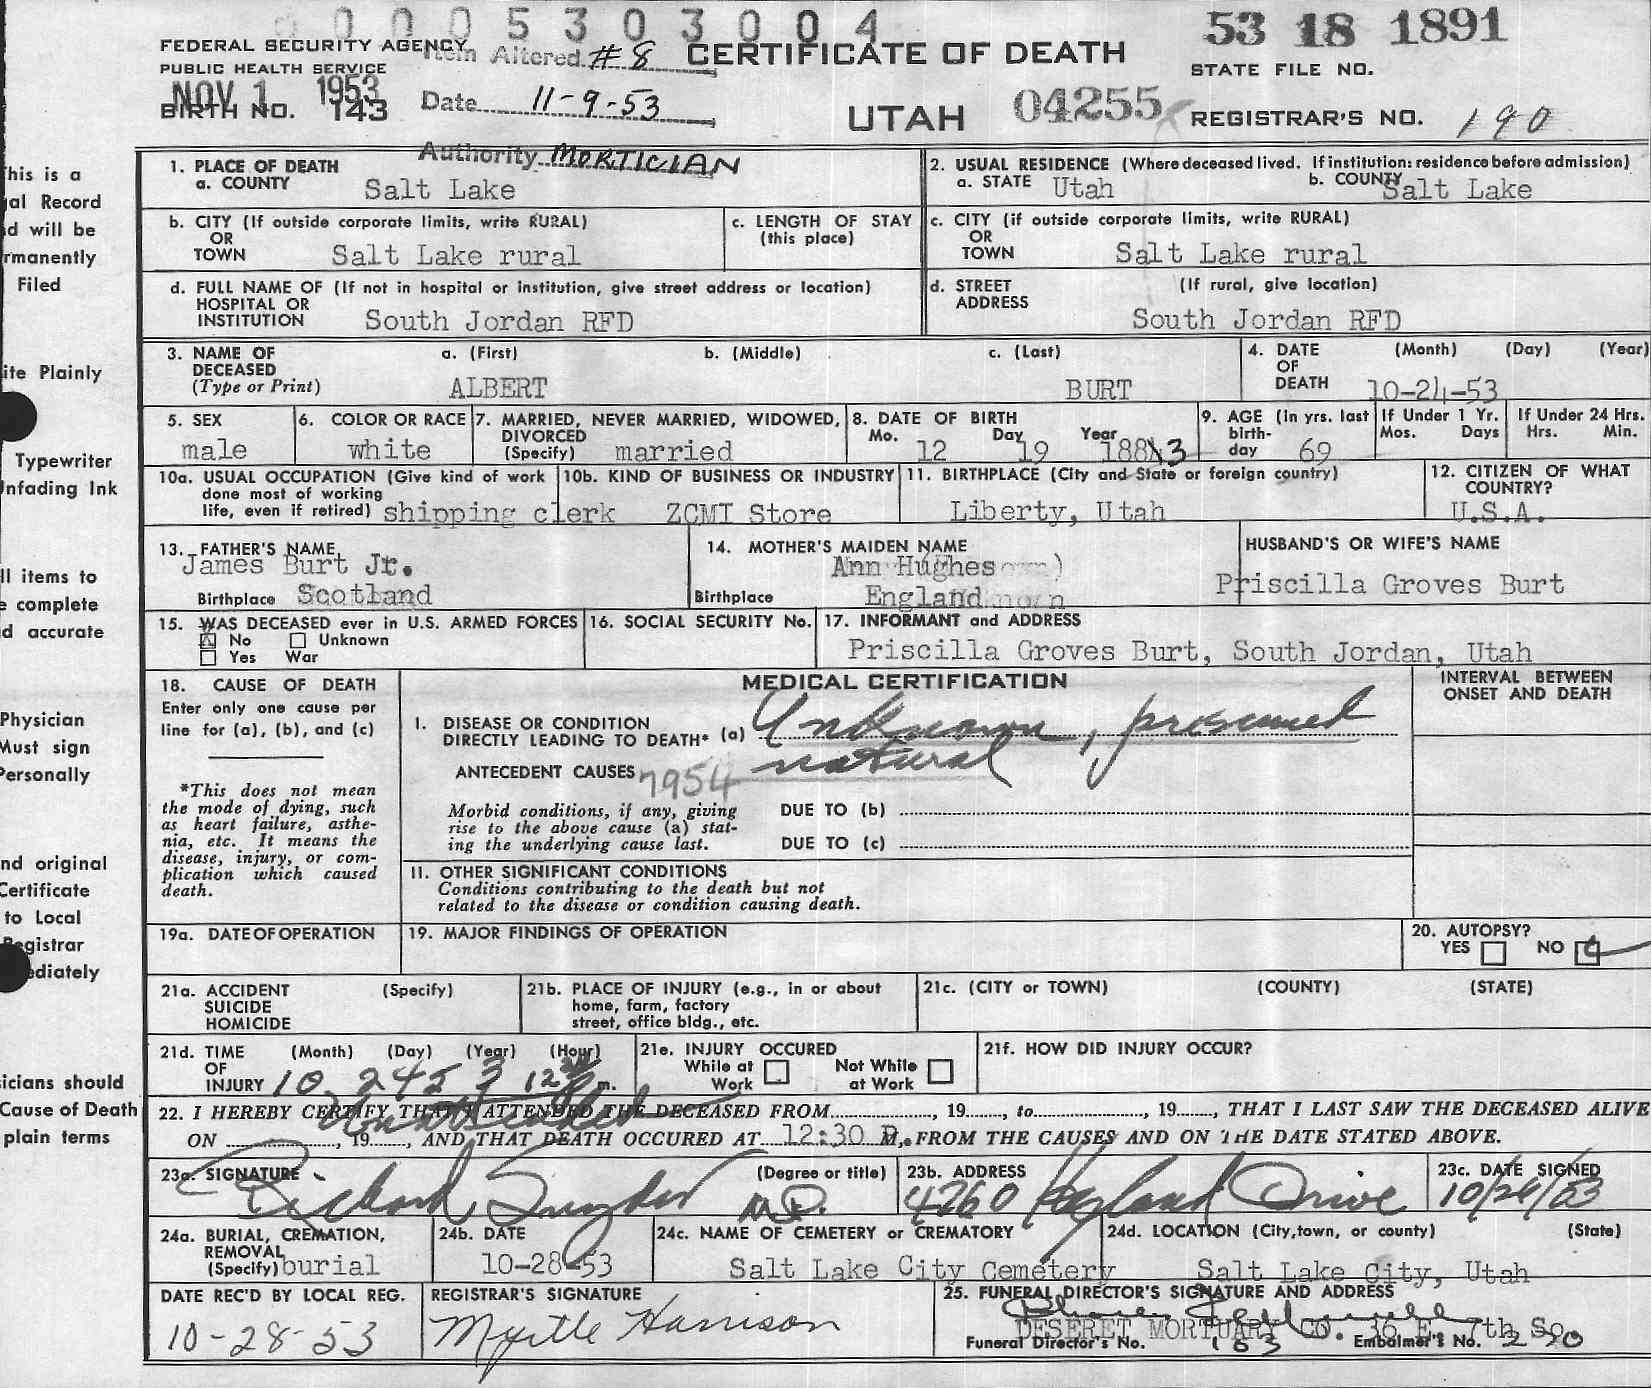 0005303004
53 18 1891
FEDERAL SECURITY AGENCY
PUBLIC HEALTH SERVICE
Item Altered #8
CERTIFICATE OF DEATH
STATE FILE NO.
NOV 1 1953
BIRTH NO. 143
Date 11-9-53
UTAH
04255
REGISTRAR'S NO. 190
Authority MORTICIAN
1. PLACE OF DEATH
a. COUNTY Salt Lake
2. USUAL RESIDENCE (Where deceased lived. If institution: residence before admission)
a. STATE Utah b. COUNTY Salt Lake
b. CITY (If outside corporate limits, write RURAL)
OR
TOWN Salt Lake rural
c. LENGTH OF STAY
(this place)
c. CITY (if outside corporate limits, write RURAL)
OR
TOWN Salt Lake rural
d. FULL NAME OF (If not in hospital or institution, give street address or location)
HOSPITAL OR
INSTITUTION South Jordan RFD
d. STREET (If rural, give location)
ADDRESS South Jordan RFD
3. NAME OF DECEASED a. (First) b. (Middle) c. (Last)
(Type or Print) ALBERT BURT
4. DATE (Month) (Day) (Year)
OF
DEATH 10-24-53
5. SEX
male
6. COLOR OR RACE
white
7. MARRIED, NEVER MARRIED, WIDOWED,
DIVORCED
(Specify) married
8. DATE OF BIRTH
Mo. Day Year
12 19 1883
9. AGE (in yrs. last
birth-
day 69
If Under 1 Yr.
Mos. Days
If Under 24 Hrs.
Hrs. Min.
10a. USUAL OCCUPATION (Give kind of work
done most of working
life, even if retired) shipping clerk
10b. KIND OF BUSINESS OR INDUSTRY
ZCMI Store
11. BIRTHPLACE (City and State or foreign country)
Liberty, Utah
12. CITIZEN OF WHAT
COUNTRY?
U.S.A.
13. FATHER'S NAME
James Burt Jr.
Birthplace Scotland
14. MOTHER'S MAIDEN NAME
Ann Hughes
Birthplace England
HUSBAND'S OR WIFE'S NAME
Priscilla Groves Burt
15. WAS DECEASED ever in U.S. ARMED FORCES
No Unknown
Yes War
16. SOCIAL SECURITY No.
17. INFORMANT and ADDRESS
Priscilla Groves Burt, South Jordan, Utah
18. CAUSE OF DEATH
Enter only one cause per
line for (a), (b), and (c)
*This does not mean
the mode of dying, such
as heart failure, asthe-
nia, etc. It means the
disease, injury, or com-
plication which caused
death.
MEDICAL CERTIFICATION
INTERVAL BETWEEN
ONSET AND DEATH
I. DISEASE OR CONDITION
DIRECTLY LEADING TO DEATH* (a) Unknown, presumed
natural
ANTECEDENT CAUSES 7954
Morbid conditions, if any, giving
rise to the above cause (a) stat-
ing the underlying cause last.
DUE TO (b)
DUE TO (c)
11. OTHER SIGNIFICANT CONDITIONS
Conditions contributing to the death but not
related to the disease or condition causing death.
19a. DATE OF OPERATION
19. MAJOR FINDINGS OF OPERATION
20. AUTOPSY?
YES NO
21a. ACCIDENT (Specify)
SUICIDE
HOMICIDE
21b. PLACE OF INJURY (e.g., in or about
home, farm, factory
street, office bldg., etc.
21c. (CITY or TOWN) (COUNTY) (STATE)
21d. TIME (Month) (Day) (Year) (Hour)
OF
INJURY 10 24 53 12 30 m.
21e. INJURY OCCURED
While at
Work
Not While
at Work
21f. HOW DID INJURY OCCUR?
22. I HEREBY CERTIFY THAT I ATTENDED THE DECEASED FROM , 19 , to , 19 , THAT I LAST SAW THE DECEASED ALIVE
Unattended
ON , 19 , AND THAT DEATH OCCURED AT 12:30 P. M., FROM THE CAUSES AND ON THE DATE STATED ABOVE.
23a. SIGNATURE (Degree or title)
Richard Snyder M.D.
23b. ADDRESS
4760 Highland Drive
23c. DATE SIGNED
10/26/53
24a. BURIAL, CREMATION,
REMOVAL
(Specify) burial
24b. DATE
10-28-53
24c. NAME OF CEMETERY or CREMATORY
Salt Lake City Cemetery
24d. LOCATION (City, town, or county) (State)
Salt Lake City, Utah
DATE REC'D BY LOCAL REG.
10-28-53
REGISTRAR'S SIGNATURE
Myrtle Harrison
25. FUNERAL DIRECTOR'S SIGNATURE AND ADDRESS
DESERET MORTUARY CO. 36 E. 7th So.
Funeral Director's No. 163 Embalmer's No. 230
This is a
Record
will be
Filed
Plainly
Typewriter
Ink
items to
complete
accurate
Physician
Must sign
Personally
original
Certificate
to Local
Registrar
should
Cause of Death
plain terms